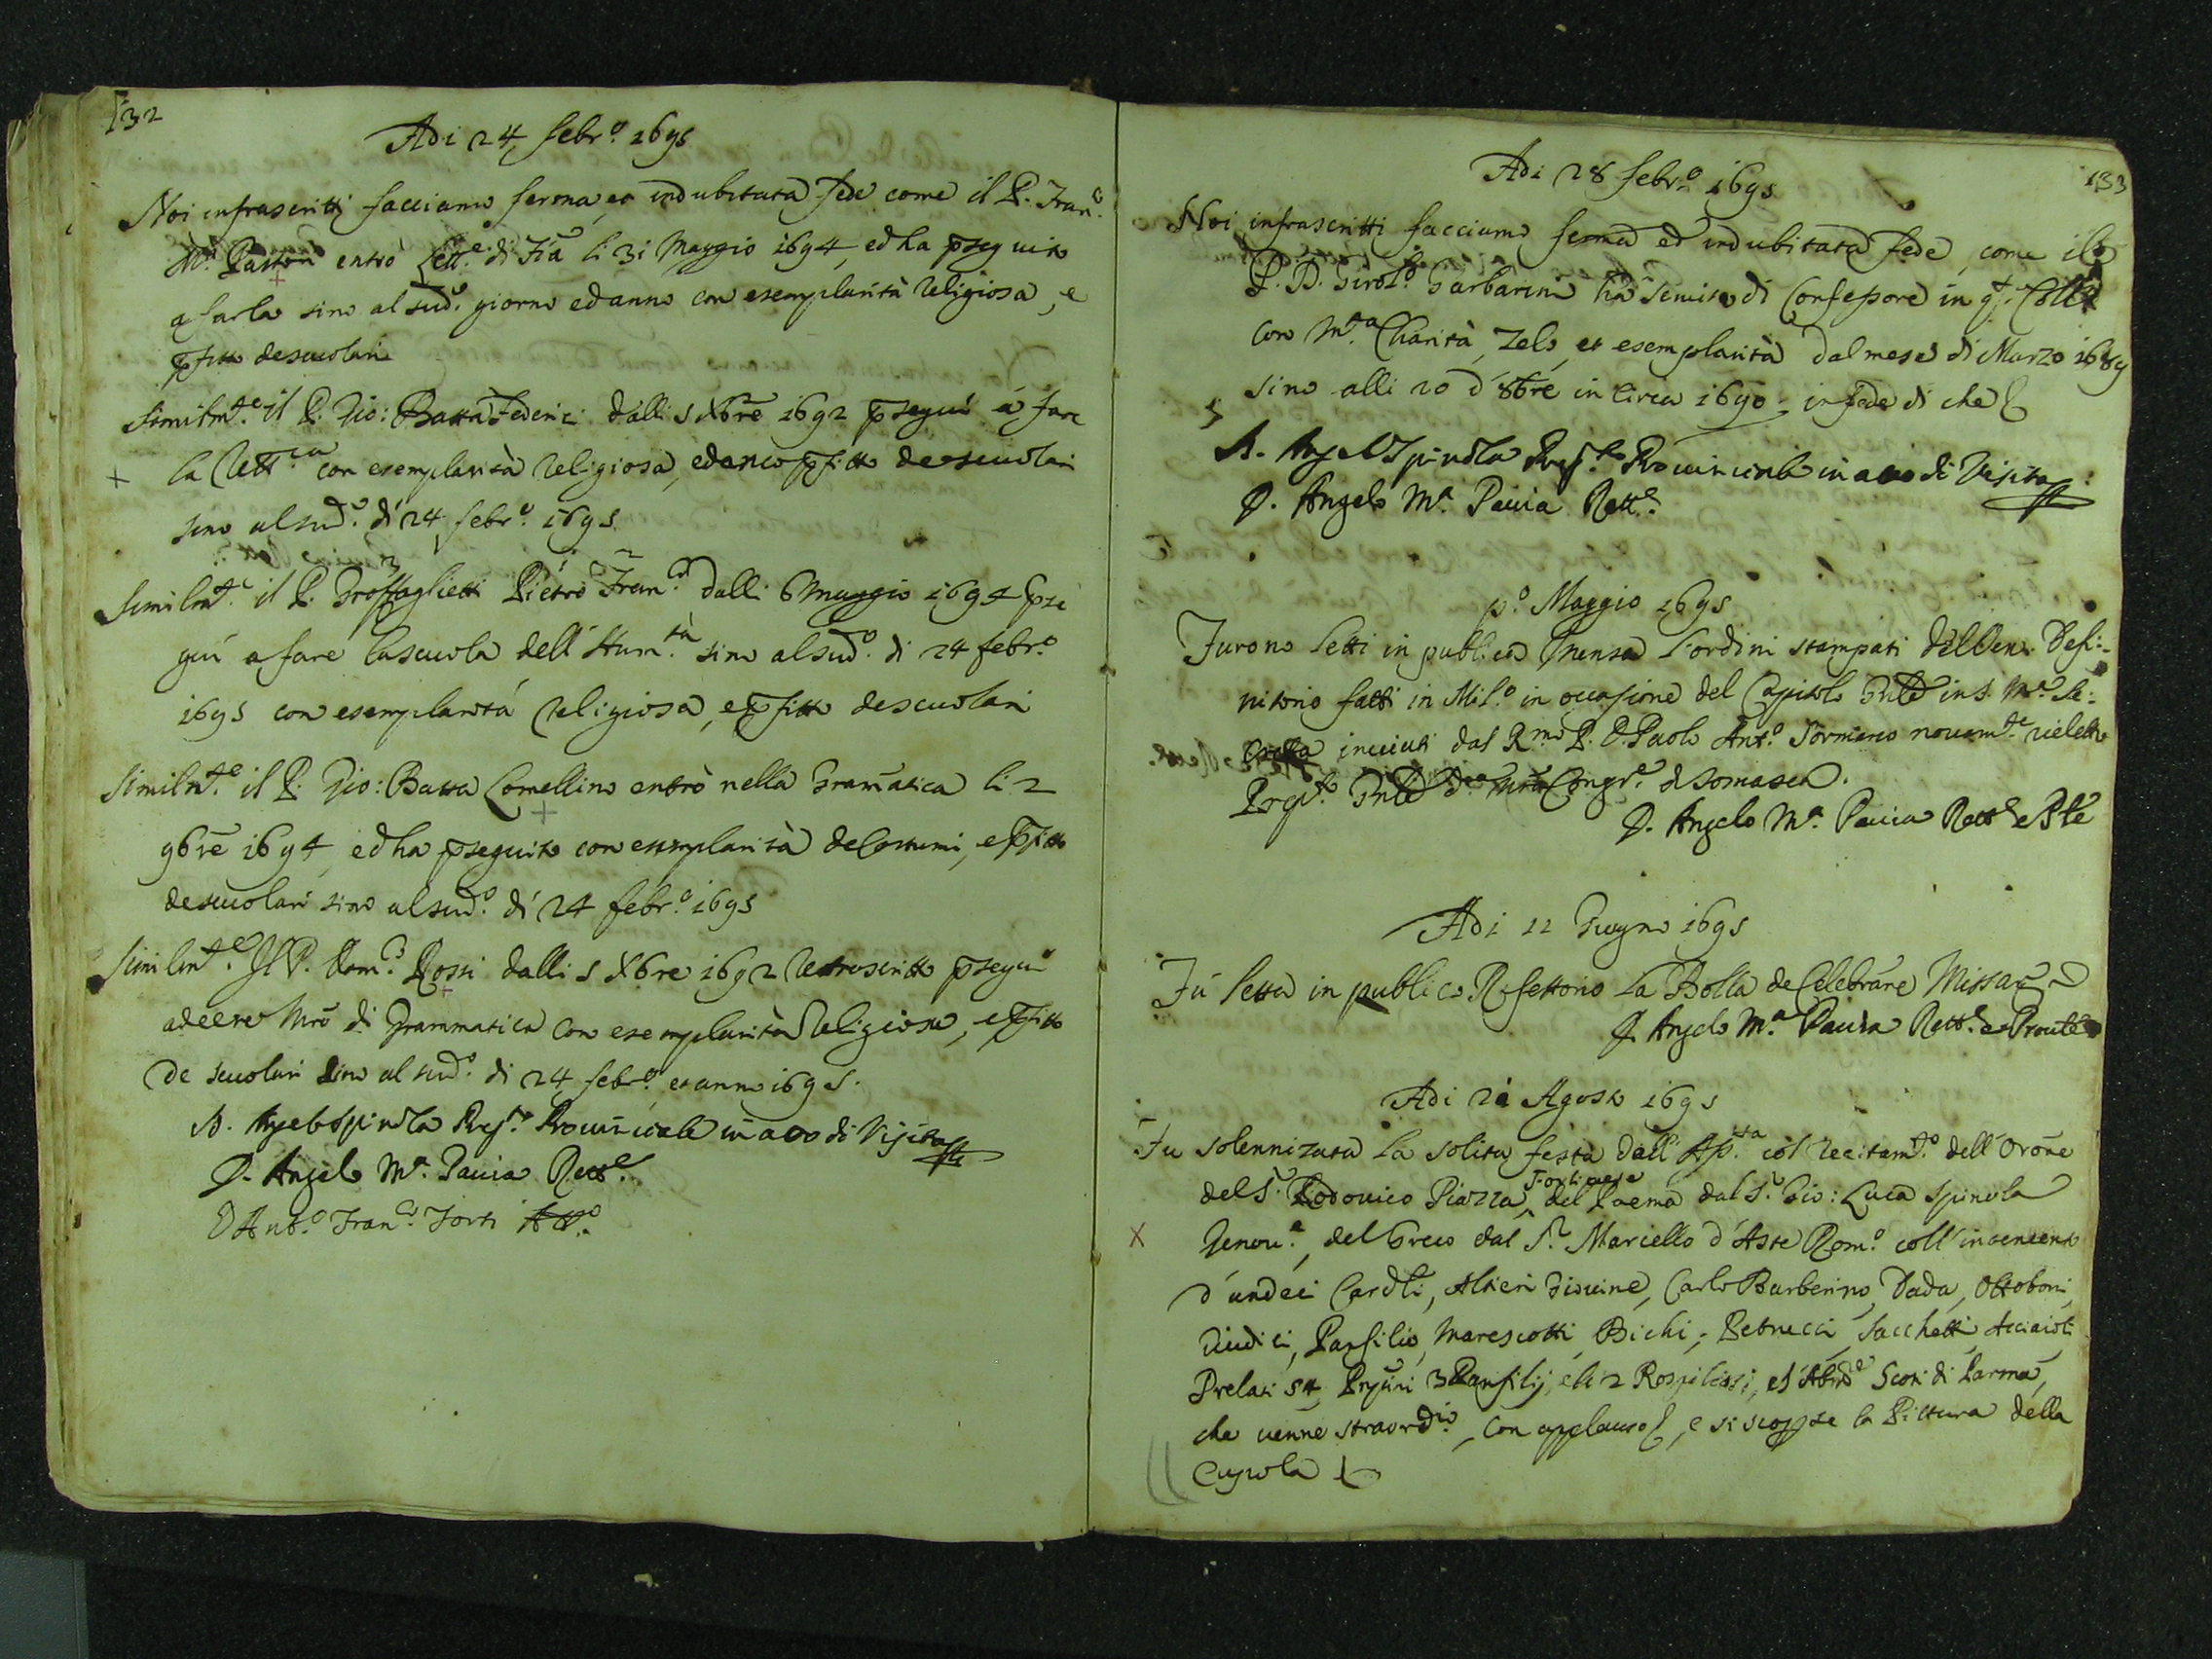 132
Adi 24 febr.o 1695
Noi infrascritti facciamo ferma, et indubitata fede come il P. Fran.co
M.a Pastori entrò Lett.e di Fia li 31 Maggio 1694, ed ha pseguito
a farla sino al sud.o giorno ed anno con esemplarità religiosa, e
pfitto de scuolari
Similm.te il P. Gio: Batta Federici dalli 5 Xbre 1692 pseguì à fare
la Rett.ca con esemplarità religiosa, ed anco pfitto de scuolari
sino al sud.o dì 24 febr.o 1695
Similm.te il P. Pietro Fran.co dalli 6 Maggio 1694 pse
guì a fare la scuola dell' Hum.tà sino al sud.o di 24 febr.o
1695 con esemplarità religiosa, e pfitto de scuolari
Similm.te il P. Gio: Batta Comellino entrò nella Gramatica li 2
9bre 1694, ed ha pseguito con esemplarità de costumi, e pfitto
de scuolari sino al sud.o dì 24 febr.o 1695
Similm.te Il P. Dom.co Rossi dalli 5 Xbre 1692 retroscritto pseguì
ad eere Mro di Grammatica con esemplarità Religiosa, e pfitto
de scuolari sino al sud.o di 24 febr.o et anno 1695.
D. Angelo Spinola Prep.to Provinciale in atto di Visita
D. Angelo M.a Pavia Rett.e
D Ant.o Fran.co Forti Att.o
133
Adi 28 febr.o 1695
Noi infrascritti facciamo ferma ed indubitata fede, come il
P. D. Girol.o Garbarini hà servito di Confessore in q.to Coll.o
con M.ta Charità, Zelo, et esemplarità dal mese di Marzo 1689
sino alli 20 d'8bre in circa 1690. in fede di che
D. Angelo Spinola Prep.to Provinciale in atto di Visita
D. Angelo M.a Pavia Rett.e
p.o Maggio 1695
Furono letti in publica mensa l'ordini stampati del Ven. Defi:
nitorio fatti in Mil.o in occasione del Capitolo Gnle in S. M.a Se:
creta inviati dal R.mo P. D. Paolo Ant.o Sormano novam.te rieletto
Prep.to Gnle della nra Congr.e di Somasca.
D. Angelo M.a Pavia Rett.e e Pte
Adi 12 Giugno 1695
Fù letta in publico Refettorio la Bolla de Celebrare Missar
D. Angelo M.a Pavia Rett.e e Pronte
Adi 21 Agosto 1695
Fu solennizata la solita festa dell' Ap.ta col recitam.to dell' Orone
del S.r Lodovico Piazza Forlivese, del Poema dal S.r Gio: Luca Spinola
Genov.e, del Greco dal S.r Mariello d'Aste Rom.o coll' intervento
d'undeci Cardli, Altieri Giovine, Carlo Barberino, Dada, Ottoboni,
Giudici, Panfilio, Marescotti, Bichi, Petrucci, Sacchetti, Acciaioli
Prelati 54, Prnpi 3 Panfilij, eli 2 Rospigliosi, el' Abbe Scoti di Parma,
che venne straord.io, con applauso, e si scopse la Pittura della
Cupola